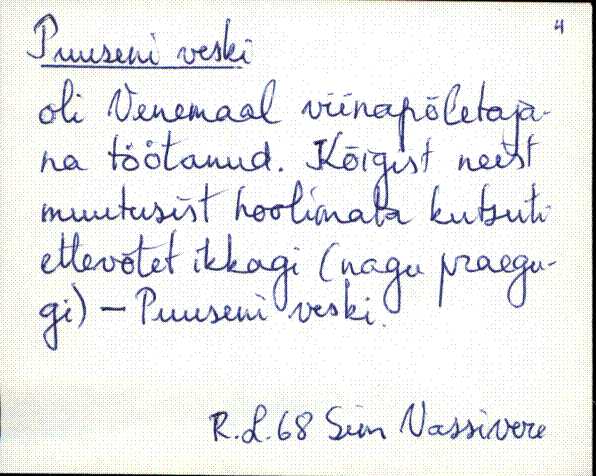 4
Puuseni veski
oli Venemaal viinapõletaja-
na töötanud. Kõigist neist
muutusist hoolimata kutsuti
ettevõtet ikkagi (nagu praegu-
gi) – Puuseni veski.
R.L.68 Siim Vassivere